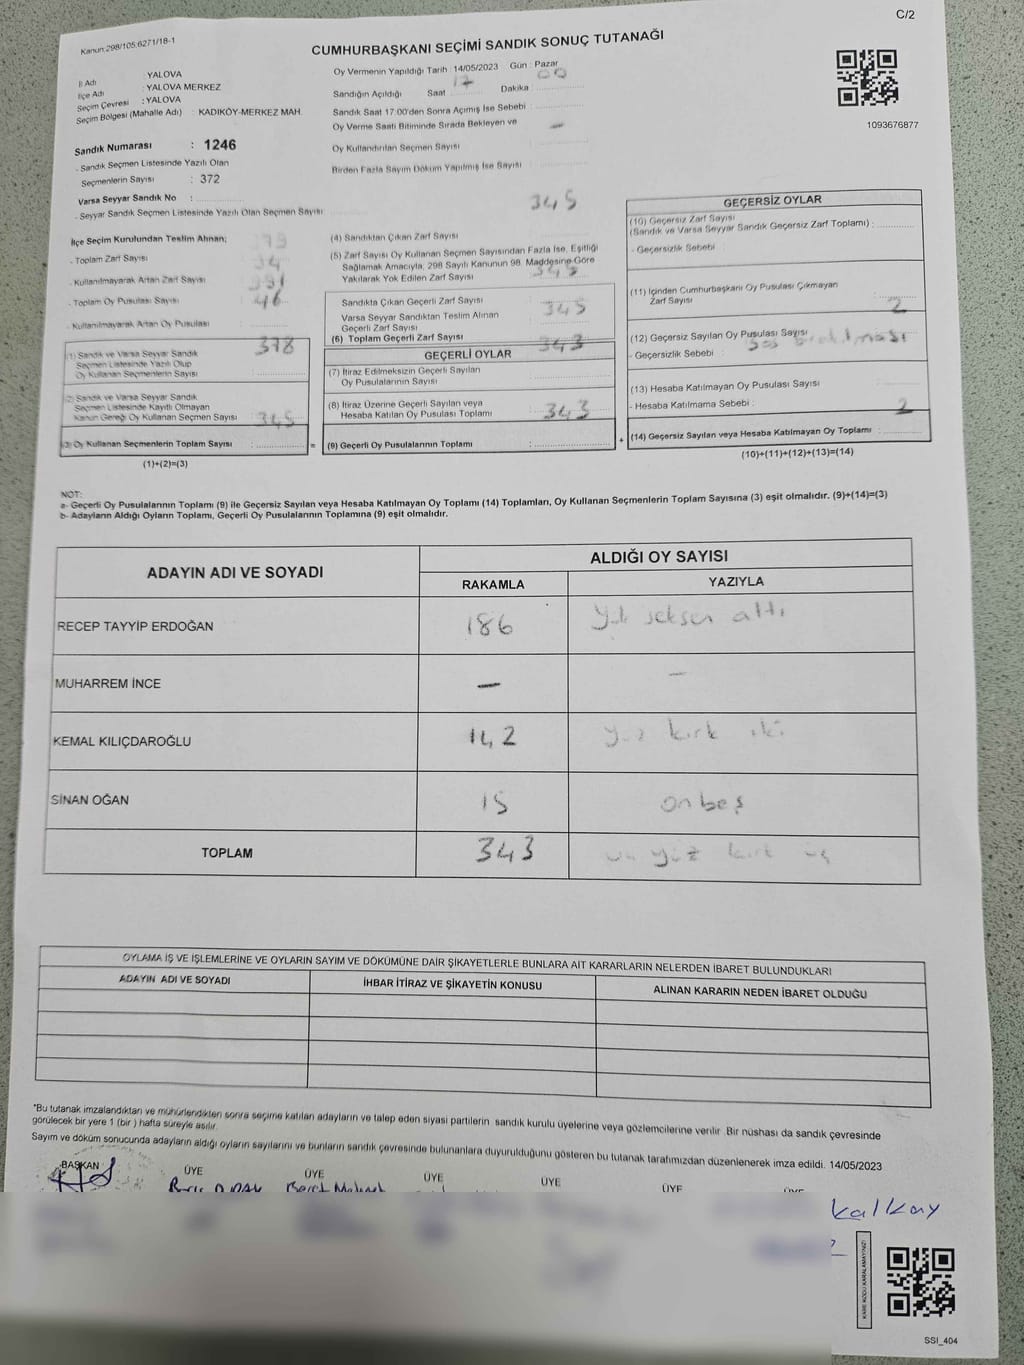 C/2
Kanun:298/105;6271/18-1
CUMHURBAŞKANI SEÇİMİ SANDIK SONUÇ TUTANAĞI
İl Adı : YALOVA
İlçe Adı : YALOVA MERKEZ
Seçim Çevresi : YALOVA
Seçim Bölgesi (Mahalle Adı) : KADIKÖY-MERKEZ MAH.
Oy Vermenin Yapıldığı Tarih : 14/05/2023 Gün : Pazar
Sandığın Açıldığı Saat 17 Dakika : 00
Sandık Saat 17:00'den Sonra Açımış İse Sebebi :
Oy Verme Saati Bitiminde Sırada Bekleyen ve
Oy Kullandırılan Seçmen Sayısı —
Birden Fazla Sayım Döküm Yapılmış İse Sayısı
1093676877
Sandık Numarası : 1246
- Sandık Seçmen Listesinde Yazılı Olan
Seçmenlerin Sayısı : 372
Varsa Seyyar Sandık No :
- Seyyar Sandık Seçmen Listesinde Yazılı Olan Seçmen Sayısı
İlçe Seçim Kurulundan Teslim Alınan;
- Toplam Zarf Sayısı
- Kullanılmayarak Artan Zarf Sayısı 34
- Toplam Oy Pusulası Sayısı
- Kullanılmayarak Artan Oy Pusulası 46
(1) Sandık ve Varsa Seyyar Sandık
Seçmen Listesinde Yazılı Olup
Oy Kullanan Seçmenlerin Sayısı
(2) Sandık ve Varsa Seyyar Sandık
Seçmen Listesinde Kayıtlı Olmayan
Kanun Gereği Oy Kullanan Seçmen Sayısı
(3) Oy Kullanan Seçmenlerin Toplam Sayısı 345
(1)+(2)=(3)
(4) Sandıktan Çıkan Zarf Sayısı 345
(5) Zarf Sayısı Oy Kullanan Seçmen Sayısından Fazla İse, Eşitliği
Sağlamak Amacıyla, 298 Sayılı Kanunun 98. Maddesine Göre
Yakılarak Yok Edilen Zarf Sayısı
Sandıkta Çıkan Geçerli Zarf Sayısı 345
Varsa Seyyar Sandıktan Teslim Alınan
Geçerli Zarf Sayısı
(6) Toplam Geçerli Zarf Sayısı 345
GEÇERLİ OYLAR
(7) İtiraz Edilmeksizin Geçerli Sayılan
Oy Pusulalarının Sayısı 343
(8) İtiraz Üzerine Geçerli Sayılan veya
Hesaba Katılan Oy Pusulası Toplamı
(9) Geçerli Oy Pusulalarının Toplamı 343
GEÇERSİZ OYLAR
(10) Geçersiz Zarf Sayısı
(Sandık ve Varsa Seyyar Sandık Geçersiz Zarf Toplamı) :
- Geçersizlik Sebebi
(11) İçinden Cumhurbaşkanı Oy Pusulası Çıkmayan
Zarf Sayısı
(12) Geçersiz Sayılan Oy Pusulası Sayısı 2
- Geçersizlik Sebebi :
(13) Hesaba Katılmayan Oy Pusulası Sayısı
- Hesaba Katılmama Sebebi :
(14) Geçersiz Sayılan veya Hesaba Katılmayan Oy Toplamı : 2
(10)+(11)+(12)+(13)=(14)
NOT:
a- Geçerli Oy Pusulalarının Toplamı (9) ile Geçersiz Sayılan veya Hesaba Katılmayan Oy Toplamı (14) Toplamları, Oy Kullanan Seçmenlerin Toplam Sayısına (3) eşit olmalıdır. (9)+(14)=(3)
b- Adayların Aldığı Oyların Toplamı, Geçerli Oy Pusulalarının Toplamına (9) eşit olmalıdır.
ADAYIN ADI VE SOYADI ALDIĞI OY SAYISI
RAKAMLA YAZIYLA
RECEP TAYYİP ERDOĞAN 186 seksen altı
MUHARREM İNCE — —
KEMAL KILIÇDAROĞLU 142 yüz kırk iki
SİNAN OĞAN 15 on beş
TOPLAM 343 yüz kırk üç
OYLAMA İŞ VE İŞLEMLERİNE VE OYLARIN SAYIM VE DÖKÜMÜNE DAİR ŞİKAYETLERLE BUNLARA AİT KARARLARIN NELERDEN İBARET BULUNDUKLARI
ADAYIN ADI VE SOYADI İHBAR İTİRAZ VE ŞİKAYETİN KONUSU ALINAN KARARIN NEDEN İBARET OLDUĞU
*Bu tutanak imzalandıktan ve mühürlendikten sonra seçime katılan adayların ve talep eden siyasi partilerin sandık kurulu üyelerine veya gözlemcilerine verilir. Bir nüshası da sandık çevresinde
görülecek bir yere 1 (bir ) hafta süreyle asılır.
Sayım ve döküm sonucunda adayların aldığı oyların sayılarını ve bunların sandık çevresinde bulunanlara duyurulduğunu gösteren bu tutanak tarafımızdan düzenlenerek imza edildi. 14/05/2023
BAŞKAN ÜYE ÜYE ÜYE ÜYE ÜYE ÜYE
kalkay
KARE KODU KARALAMAYINIZ!
SSI_404